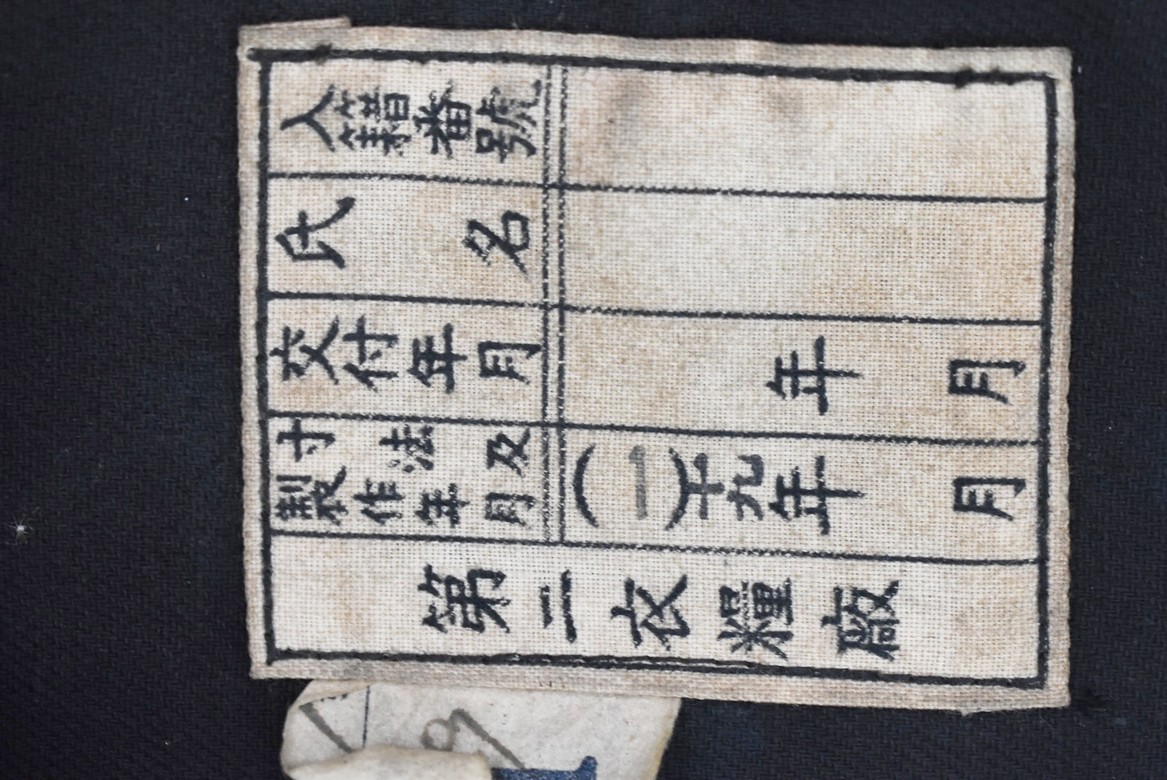 入籍番號
氏名
交付年月 年 月
寸法及
製作年月 (一)十九年 月
第二衣糧廠